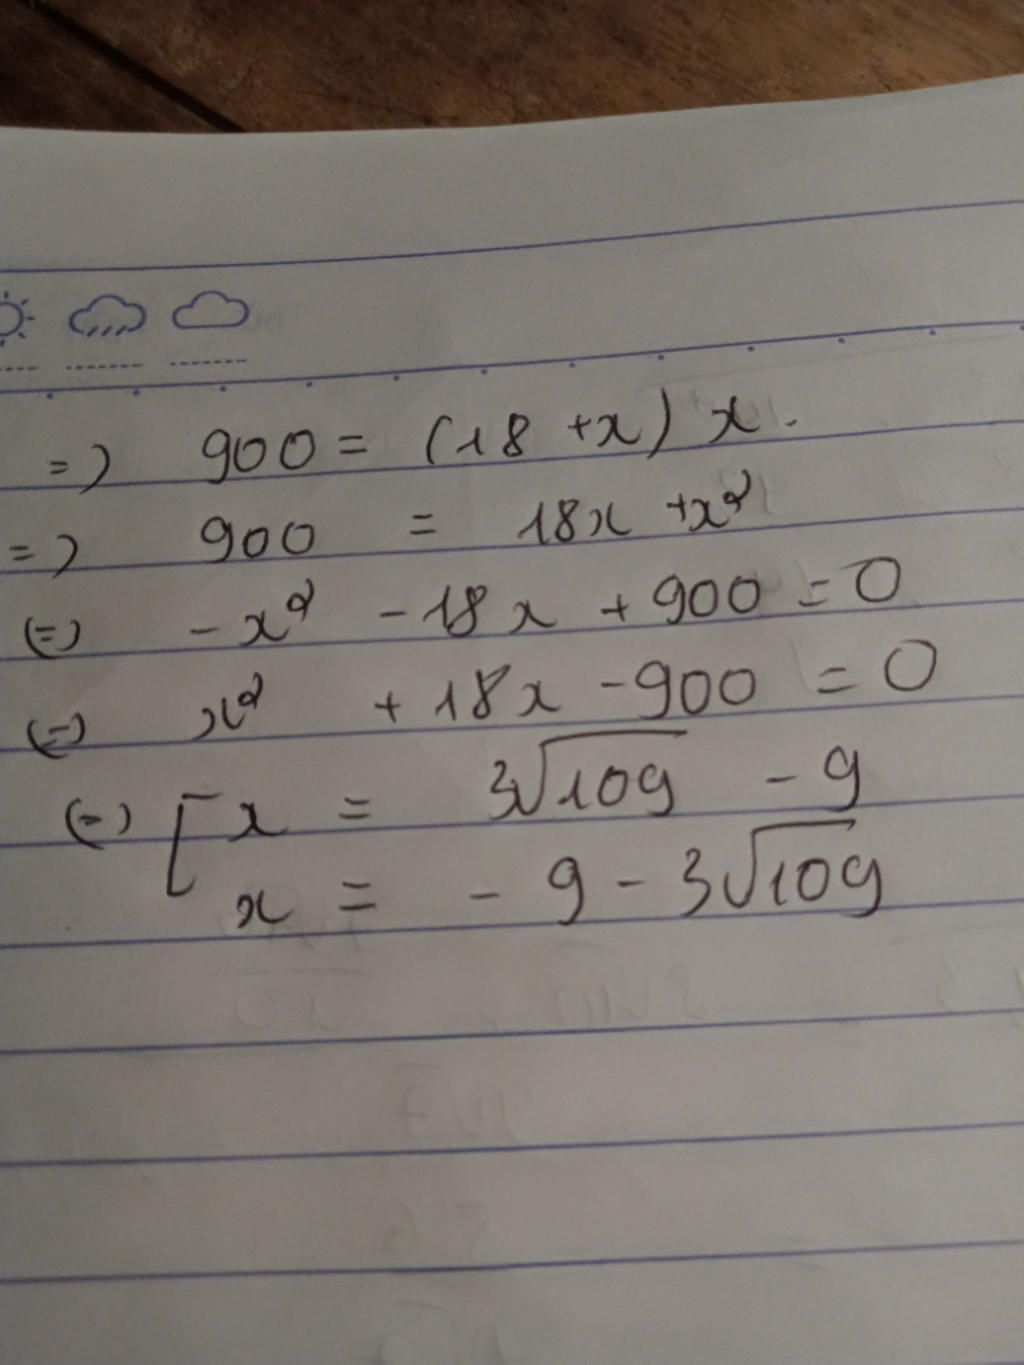 =) 900 = (18 + x) x.
=) 900 = 18x + x²
(=) - x² - 18x + 900 = 0
(=) x² + 18x - 900 = 0
(=) [ x = 3√109 - 9
x = - 9 - 3√109